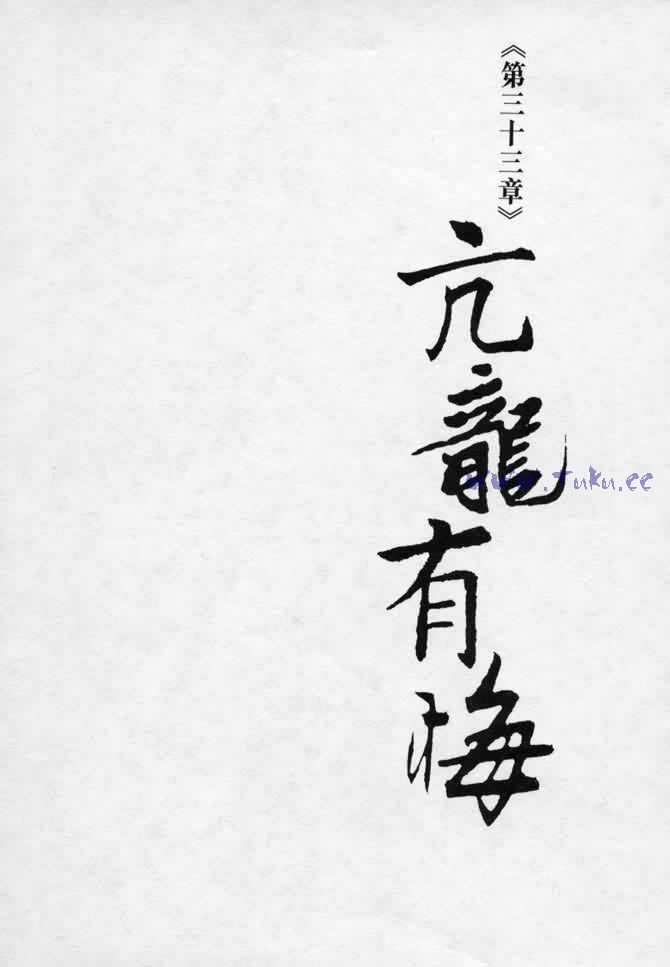 《第三十三章》
亢龍有悔
www.tuku.cc